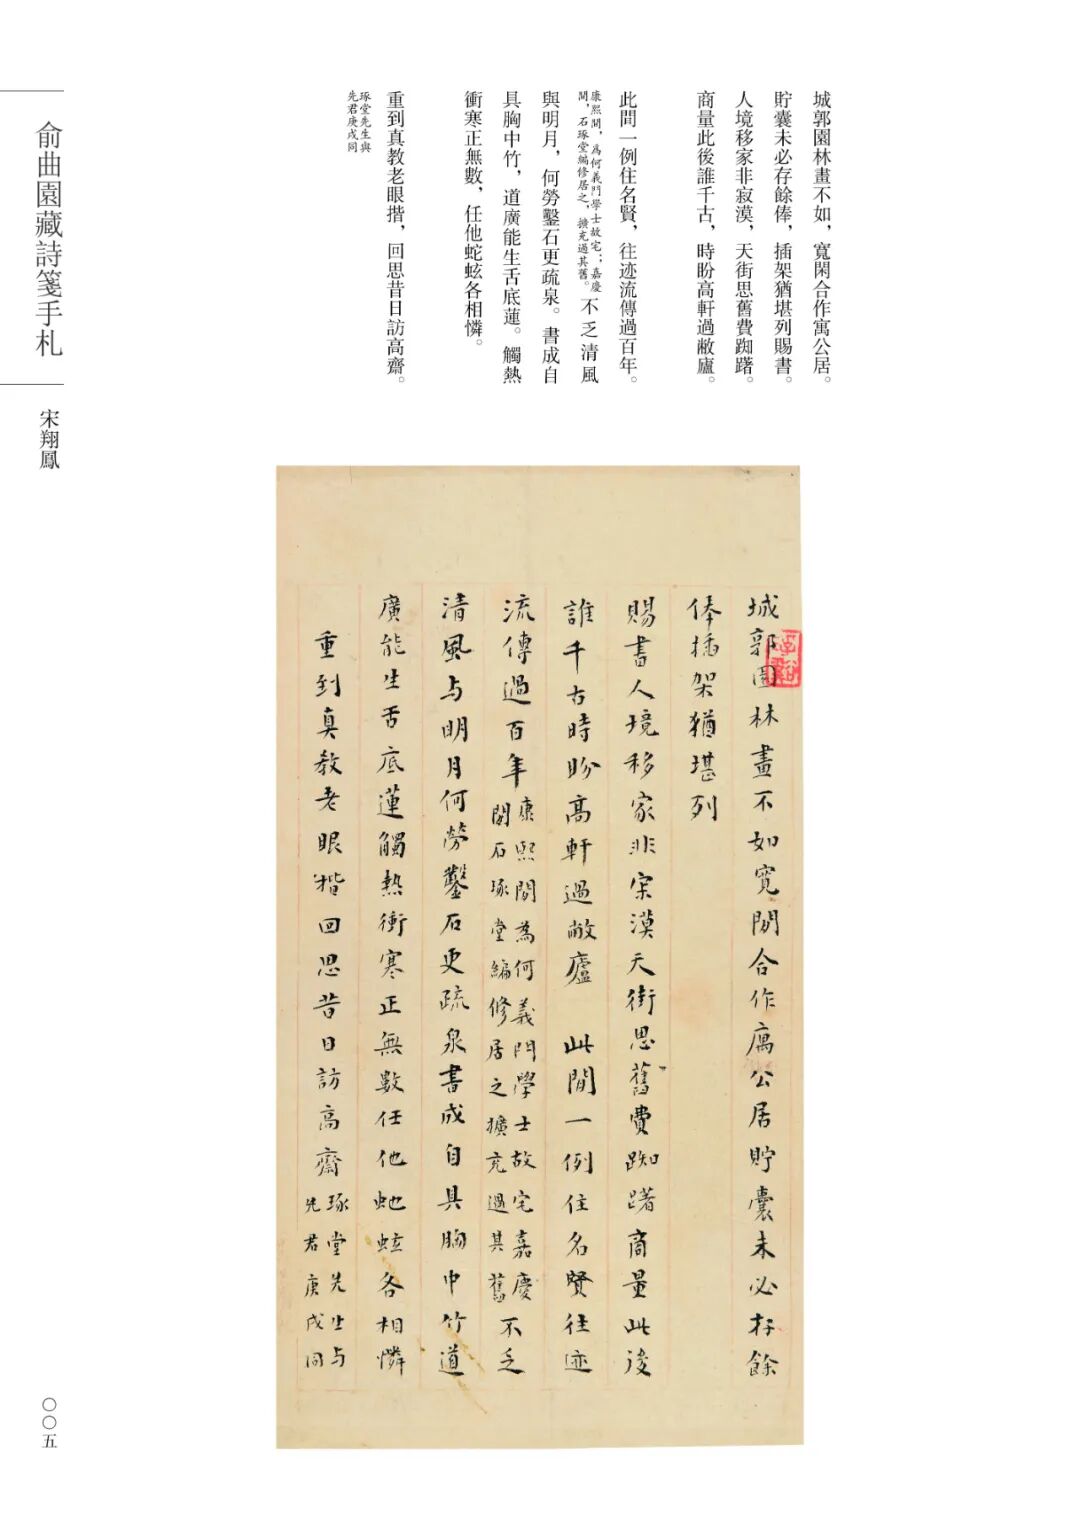 城郭園林畫不如，寬閑合作寓公居。
貯囊未必存餘俸，插架猶堪列賜書。
人境移家非寂漠，天街思舊費踟躇。
商量此後誰千古，時盼高軒過敝廬。
此間一例住名賢，往迹流傳過百年。
康熙間，爲何義門學士故宅；嘉慶
間，石琢堂編修居之，擴充過其舊。
不乏清風
與明月，何勞鑿石更疏泉。書成自
具胸中竹，道廣能生舌底蓮。觸熱
衝寒正無數，任他蛇蚿各相憐。
重到真教老眼揩，回思昔日訪高齋。
琢堂先生與
先君庚戌同
俞曲園藏詩箋手札
宋翔鳳
城郭園林畫不如寬閒合作寓公居貯囊未必存餘
俸插架猶堪列
賜書人境移家非宗漠天街思舊費踟躇商量此後
誰千古時盼高軒過敝廬　此間一例住名賢往迹
流傳過百年
康熙間為何義門學士故宅嘉慶
間石琢堂編修居之擴充過其舊
不乏
清風与明月何勞鑿石更疏泉書成自具胸中竹道
廣能生舌底蓮觸熱衝寒正無數任他虵蚿各相憐
重到真教老眼揩回思昔日訪高齋
琢堂先生与
先君庚戌同
〇〇五